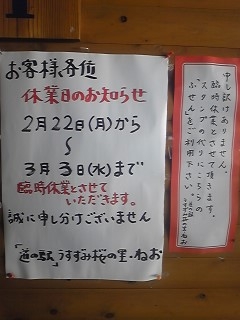 お客様各位
休業日のお知らせ
2月22日(月)から
〜
3月3日(水)まで
臨時休業とさせて
いただきます。
誠に申し分けございません
「道の駅」うすずみ桜の里・ねお
申し訳ありません。
臨時休業とさせて頂きます。
スタンプの代りにこちらの
「ぶせん」をご利用下さい。
道の駅
うすずみ桜の里・ねお